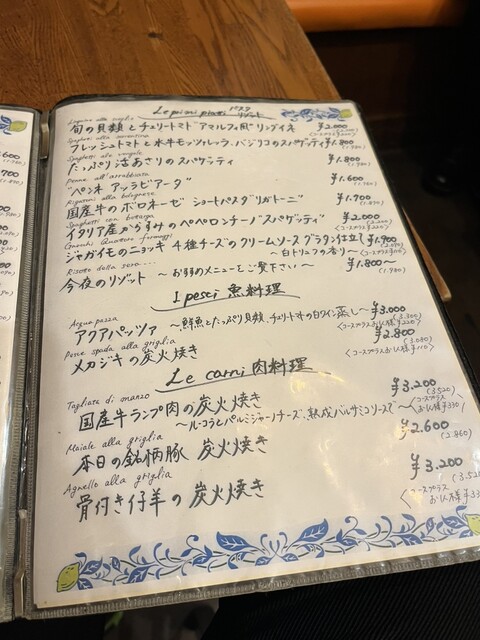 Le primi piatti パスタ リゾット
Linguine alla amalfi
旬の貝類とチェリートマト"アマルフィ風"リングイネ ¥2.000
(2.200)
Spaghetti alla sorrentina
フレッシュトマトと水牛モッツァレッラ、バジリコのスパゲッティ ¥1.800
Spaghetti alle vongole
たっぷり活あさりのスパゲッティ ¥1.800
Penne all'arrabbiata
"ペンネ アッラビアータ" ¥1.600
Rigatoni alla bolognese
国産牛のボロネーゼ ショートパスタ"リガトーニ" ¥1.700
Spaghetti con bottarga
イタリア産からすみのペペロンチーノスパゲッティ ¥2.000
Gnocchi Quattro formaggi
ジャガイモのニョッキ 4種チーズのクリームソース グラタン仕立て ¥1.900
〜白トリュフの香り〜
Risotto della sera...
今夜のリゾット 〜お弱のメニューをご覧下さい〜 ¥1.800〜
(1.980)
I pesci 魚料理
Acqua pazza
アクアパッツァ 〜鮮魚とたっぷり貝類、チェリートマトの白ワイン蒸し〜 ¥3.000
(3.300)
<コースプラスお1人様¥220>
Pesce spada alla griglia
メカジキの炭火焼き ¥2.800
(3.080)
<コースプラスお1人様¥110>
Le carni 肉料理
Tagliata di manzo
国産牛ランプ肉の炭火焼き ¥3.200
(3.520)
〜ルーコラとパルミジャーノチーズ、熟成バルサミコソースで〜
<コースプラス
お1人様¥330>
Maiale alla griglia
本日の銘柄豚 炭火焼き ¥2.600
(2.860)
Agnello alla griglia
骨付き仔羊の 炭火焼き ¥3.200
<コースプラス
お1人様¥330>